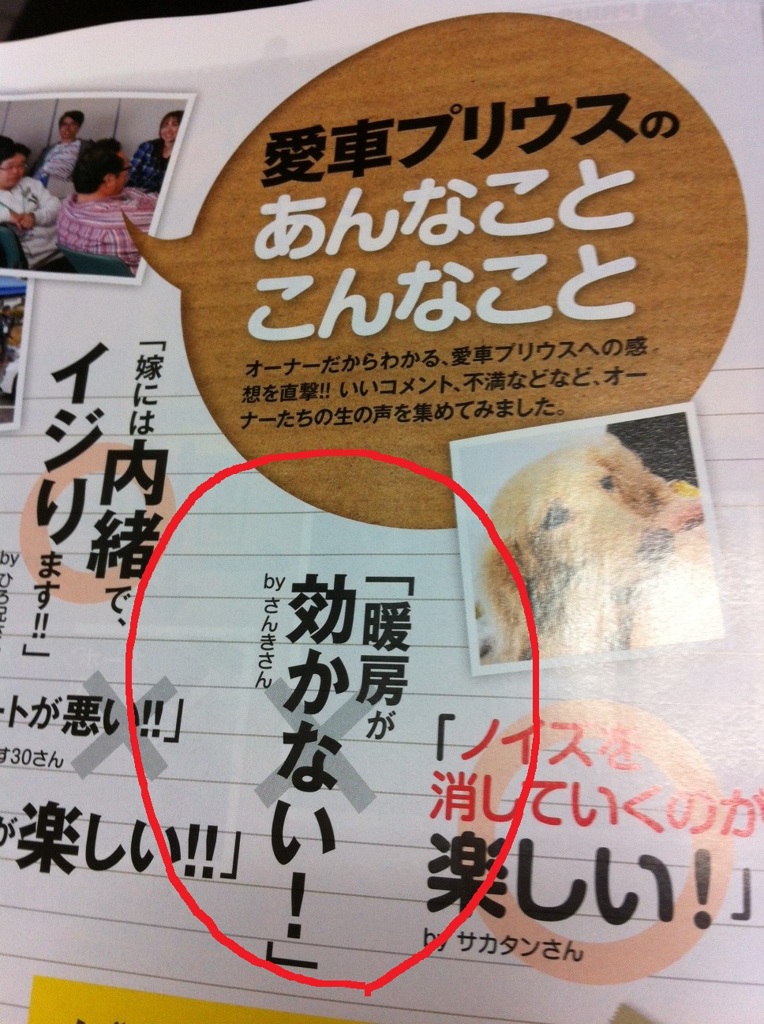 愛車プリウスの
あんなこと
こんなこと
オーナーだからわかる、愛車プリウスへの感
想を直撃!! いいコメント、不満などなど、オー
ナーたちの生の声を集めてみました。
「ノイズを
消していくのが
楽しい！」
by サカタンさん
「暖房が
効かない！」
by さんきさん
「嫁には内緒で、
イジります!!」
by ひろ兄
ートが悪い!!」
す30さん
が楽しい!!」